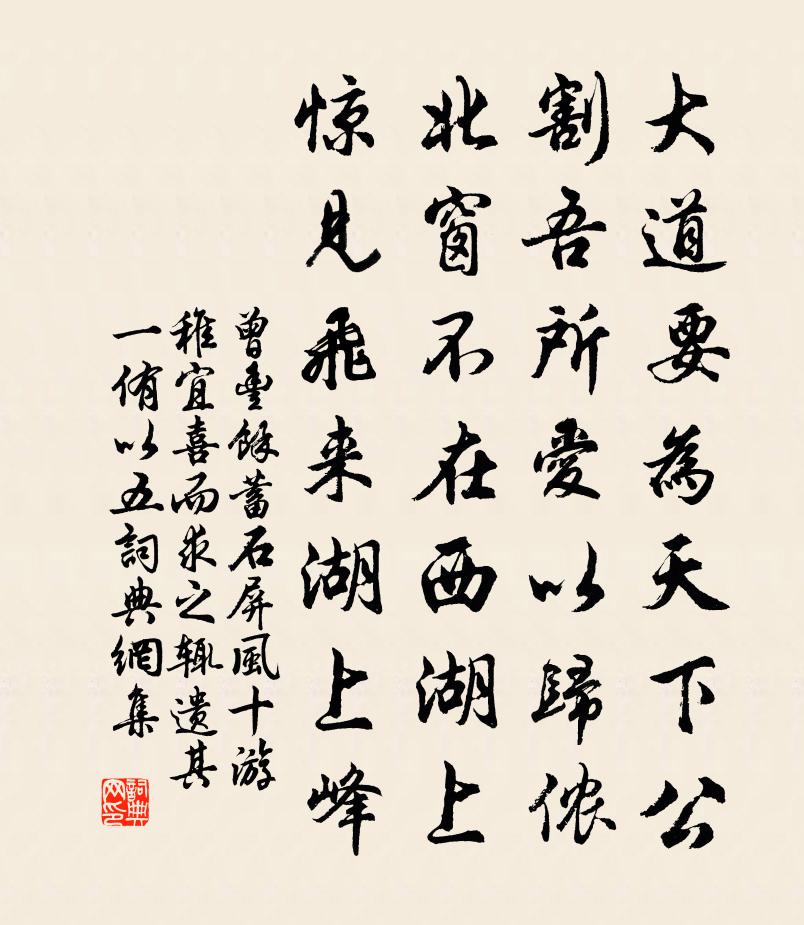 大道要為天下公
割吾所愛以歸侬
北窗不在西湖上
惊見飛来湖上峰
曾豐餘蓄石屏風十游
稚宜喜而求之輙遗其
一侑以五詞典網集
詞典网印